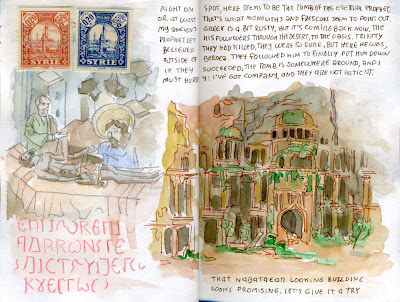 SYRIE
SYRIE
RIGHT ON SPOT, HERE SEEMS TO BE THE TOMB OF THE ETERNAL PROPHET,
OR AT LEAST THAT'S WHAT MONOLITHS AND FRESCOE SEEM TO POINT OUT.
MY ANCIENT GREEK IS A BIT RUSTY, BUT IT'S COMING BACK NOW, THE
PROPHET LET HIS FOLLOWERS THROUGH THE DESERT, TO THE OASIS, TRINITY
BELIEVED THEY HAD KILLED, THEY WERE SO SURE, BUT HERE HE WAS,
OUTSIDE OF BEROEA. THEY FOLLOWED HIM TO FINALLY PUT HIM DOWN
IF THEY SUCCEEDED, THE TOMB IS SOMEWHERE AROUND, AND I
MUST HURRY: I'VE GOT COMPANY, AND THEY ARE NOT PATIENT.
THAT NABATAEAN LOOKING BUILDING
LOOKS PROMISING, LET'S GIVE IT A TRY